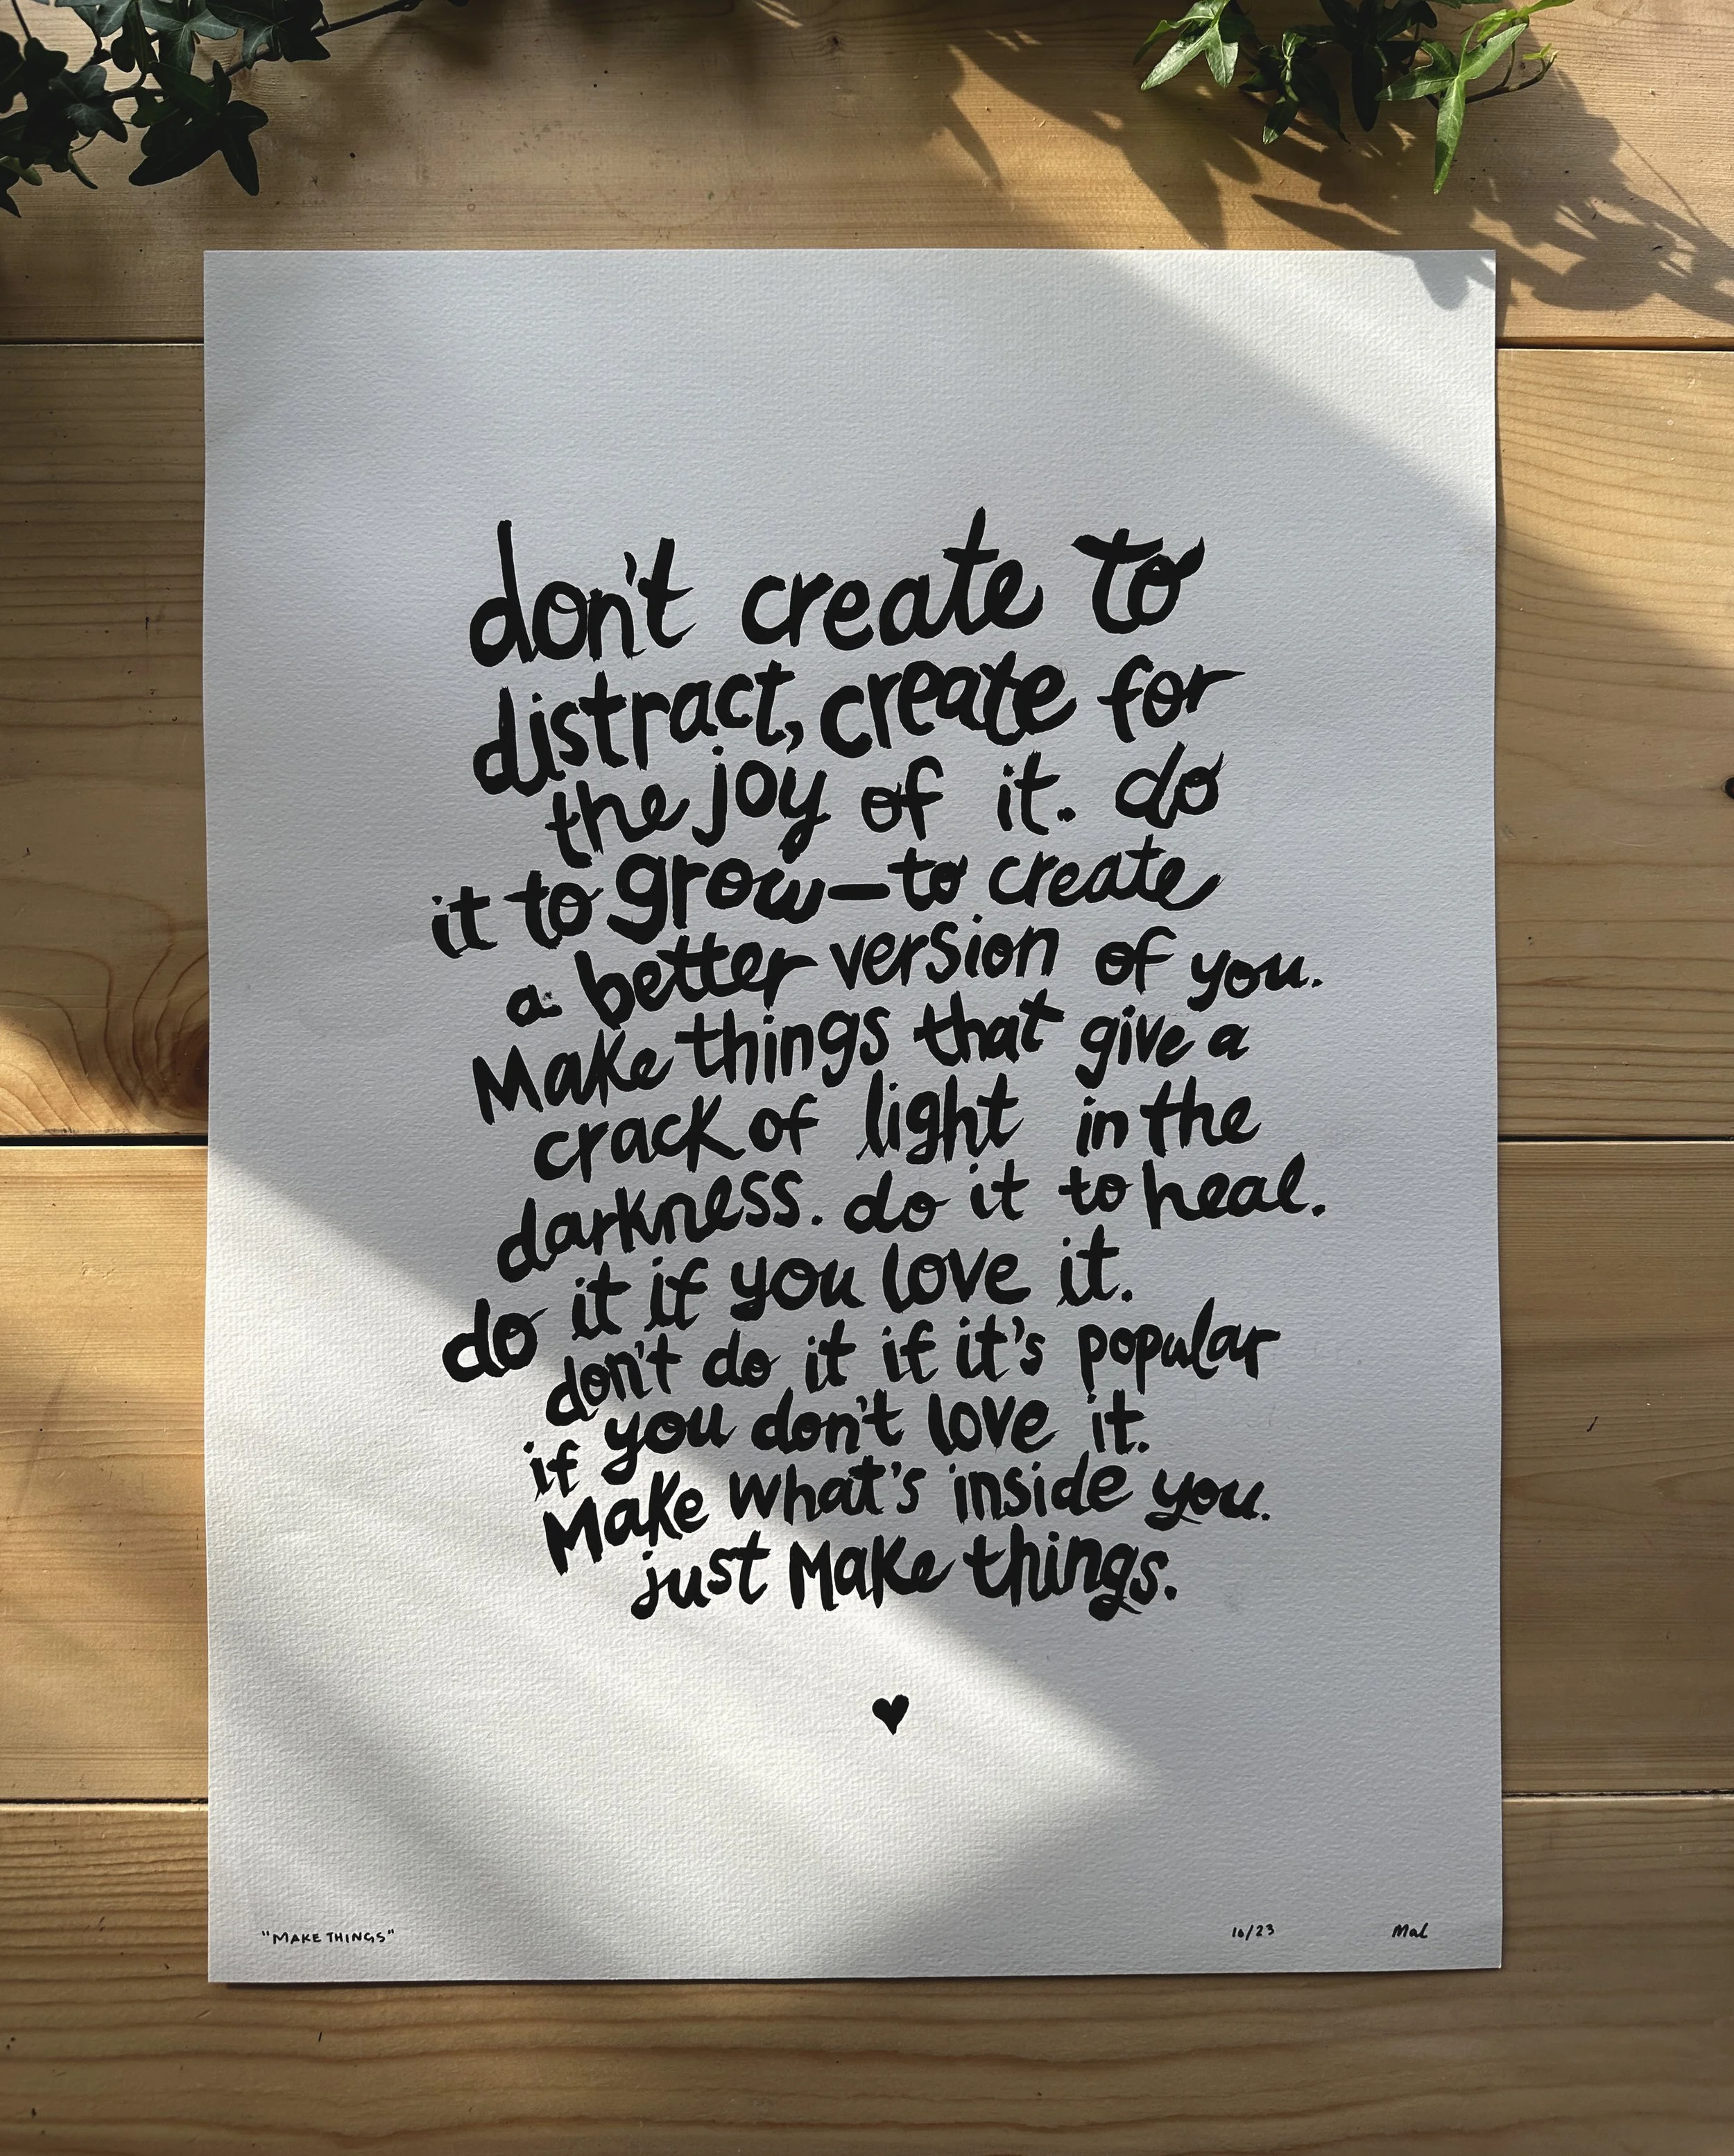 don't create to
distract, create for
the joy of it. do
it to grow—to create
a better version of you.
Make things that give a
crack of light in the
darkness. do it to heal.
do it if you love it.
don't do it if it's popular
if you don't love it.
Make what's inside you.
just Make things.
"MAKE THINGS" 10/23 Mal